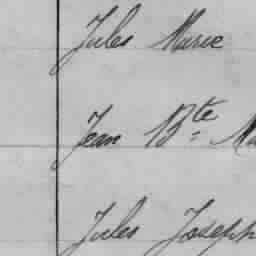 Jules Marie
Jean Bte
Jules Joseph